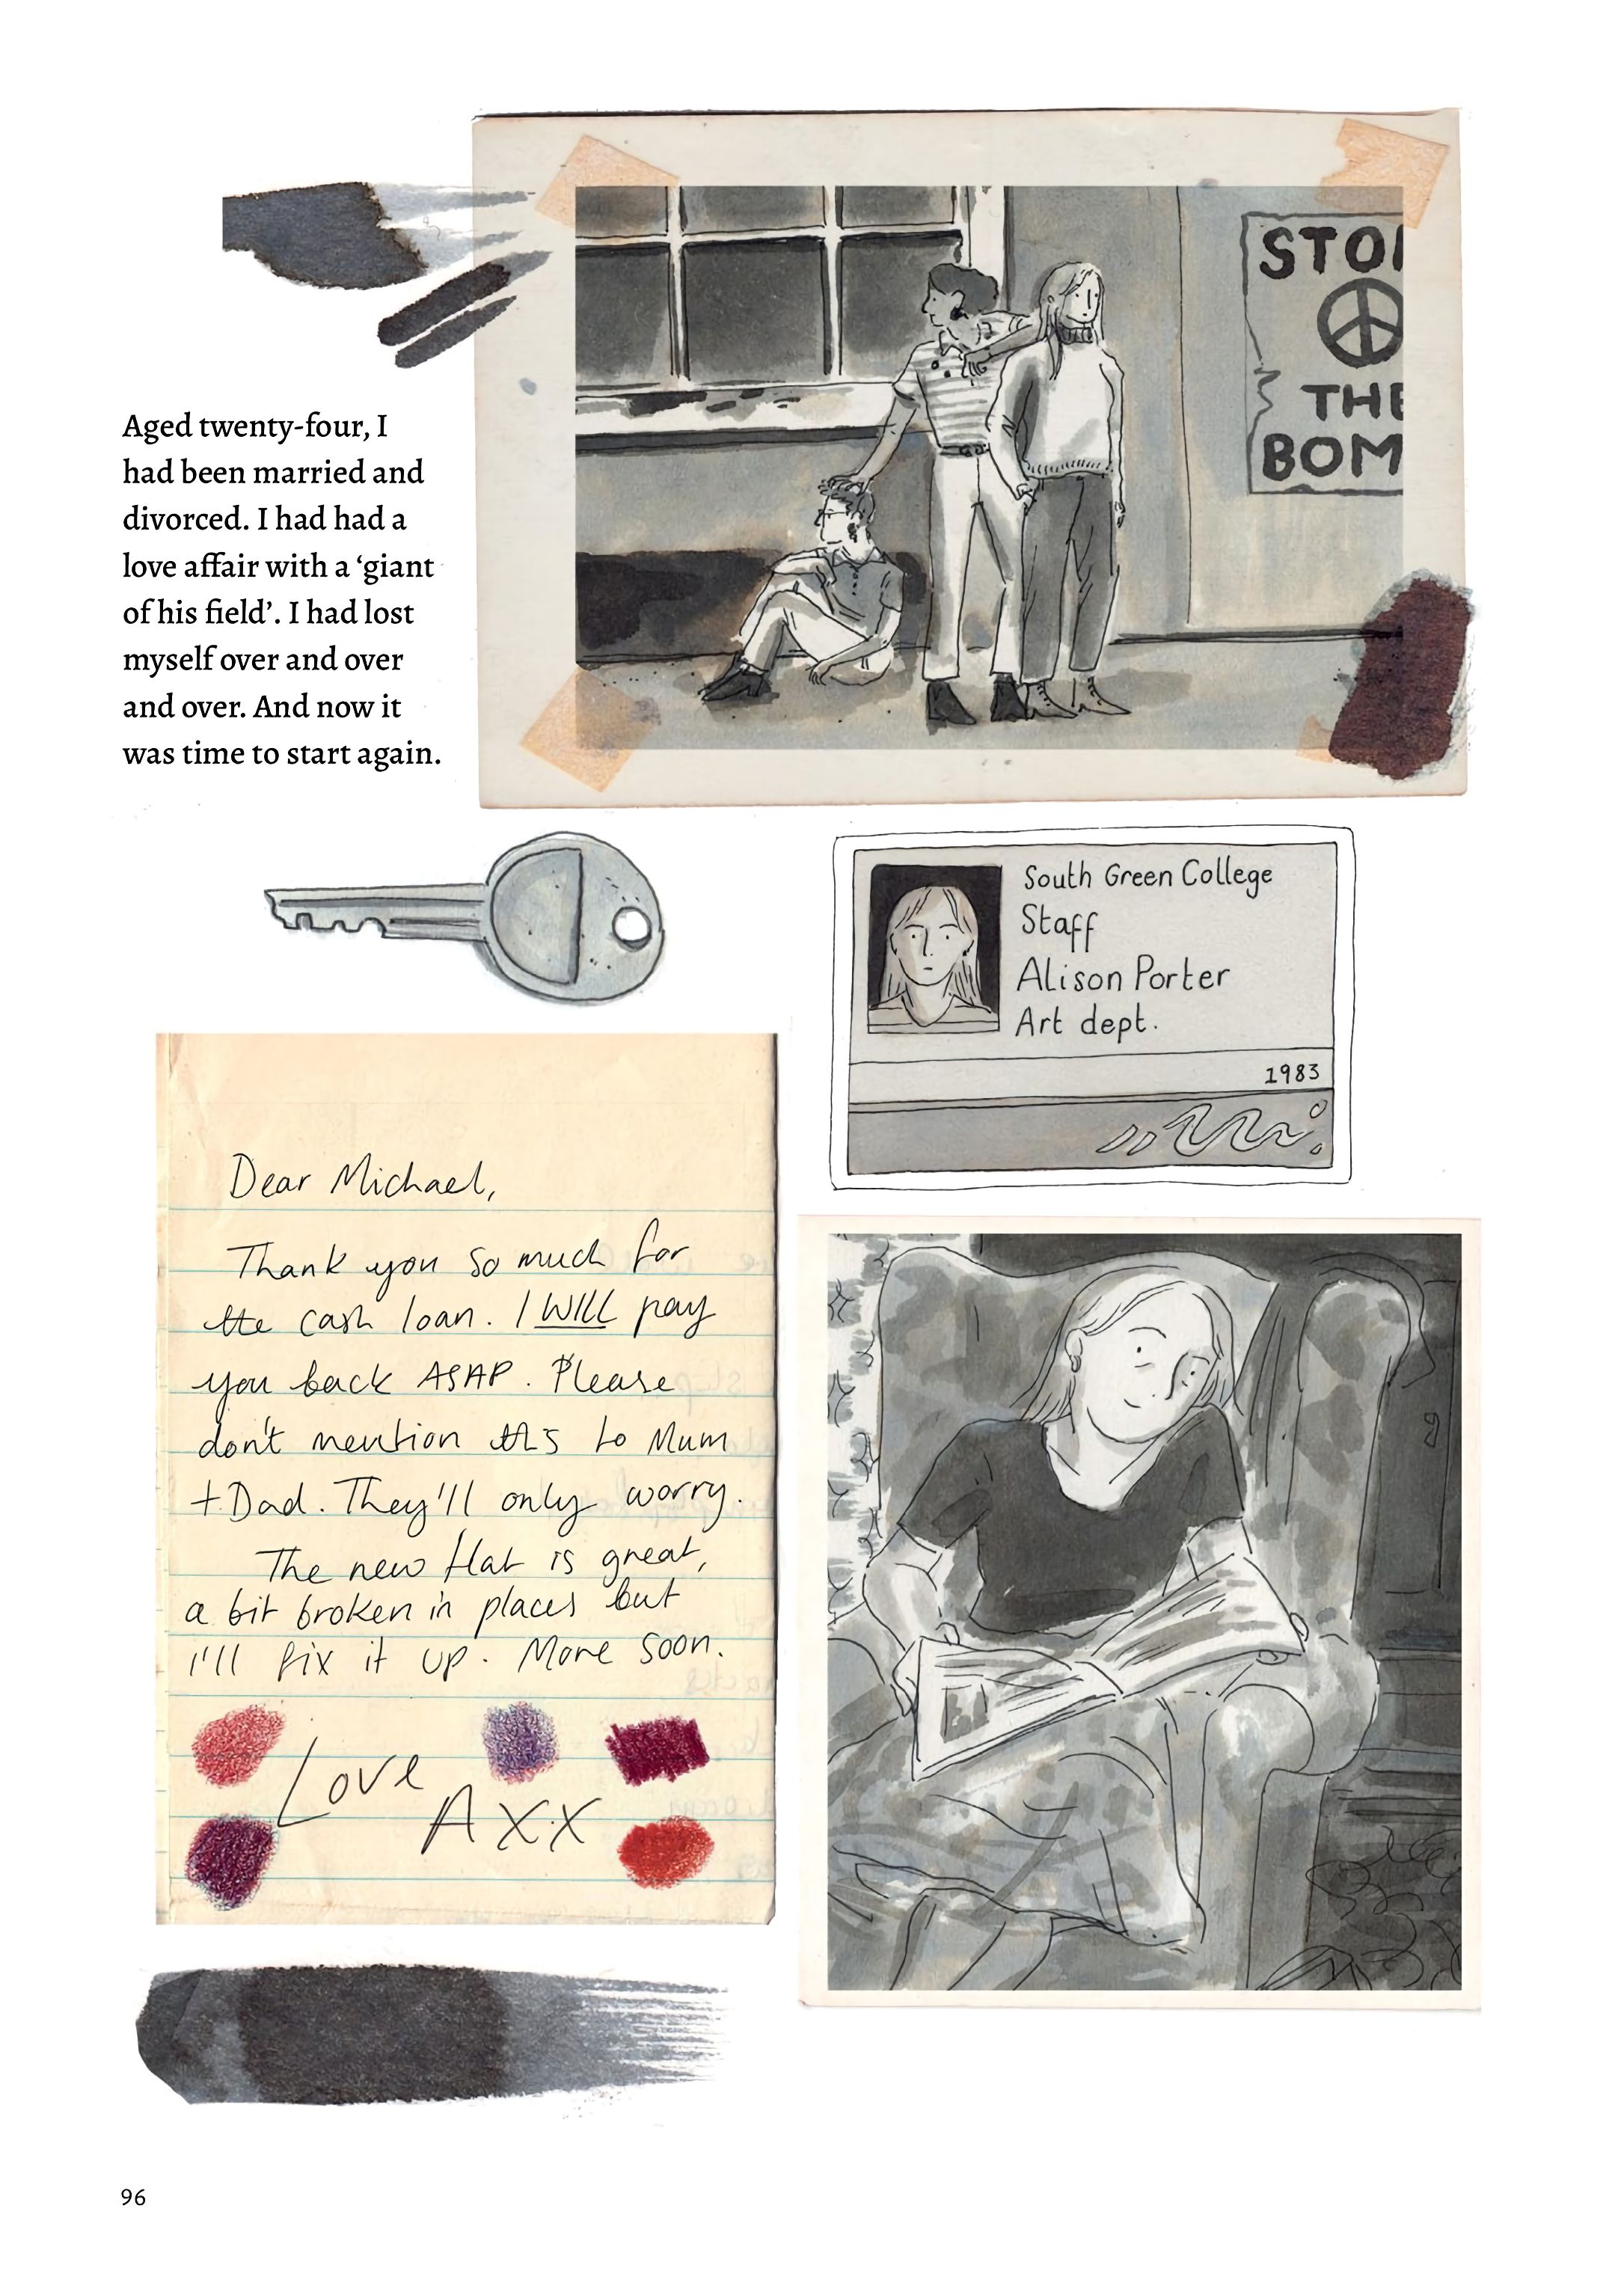 Aged twenty-four, I
had been married and
divorced. I had had a
love affair with a ‘giant
of his field’. I had lost
myself over and over
and over. And now it
was time to start again.
STO
THE
BOM
South Green College
Staff
Alison Porter
Art dept.
1983
Dear Michael,
Thank you so much for
the cash loan. I WILL pay
you back ASAP. Please
don't mention this to Mum
+ Dad. They'll only worry.
The new flat is great,
a bit broken in places but
I'll fix it up. More soon.
Love
A X X
96